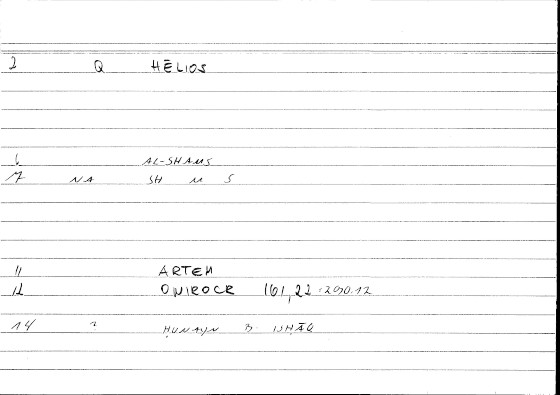 2 Q HĒLIOS
6 AL-SHAMS
7 NA SH M S
11 ARTEM
12 ONIROCR 161,22 = 290.12
14 2 ḤUNAYN B. ISḤĀQ